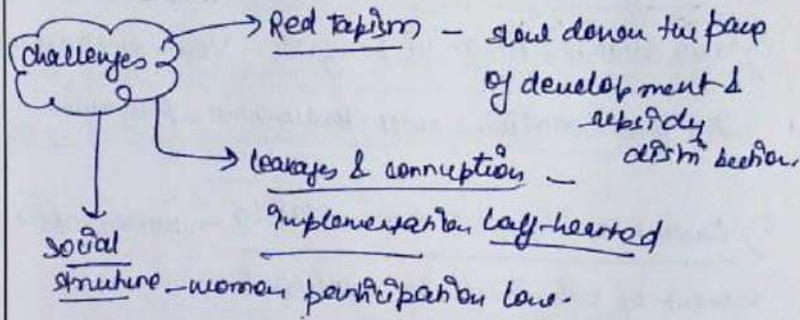 Challenges
Red Tapism – slow down the pace
of development &
subsidy
distribution.
Leakages & corruption –
Implementation half-hearted
Social
structure – women participation low.